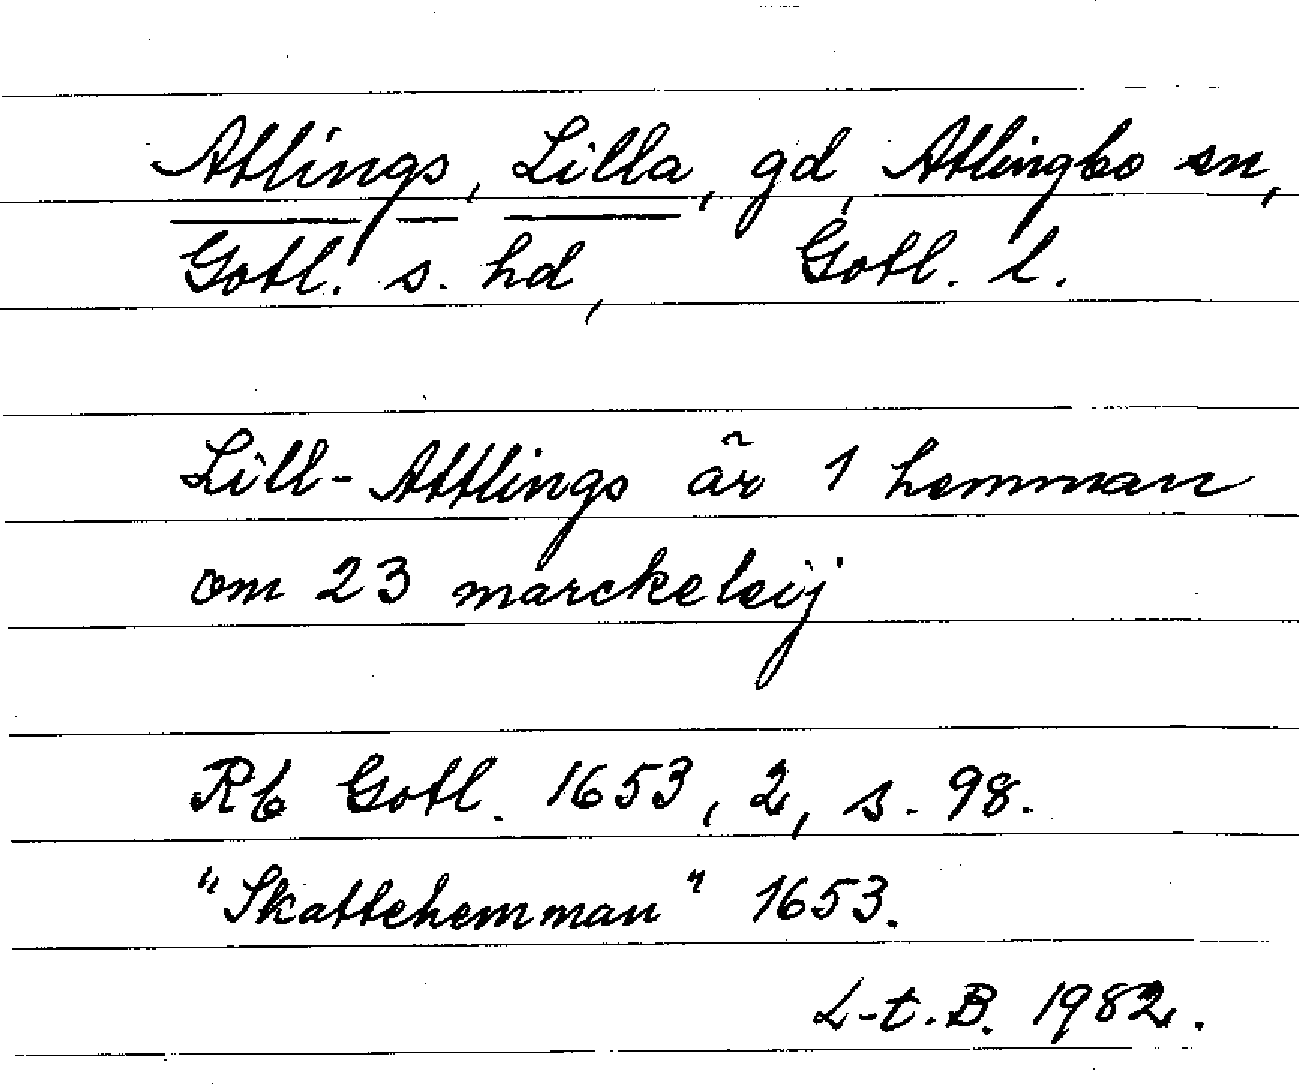 Atlings, Lilla, gd, Atlingbo sn,
Gotl. s. hd, Gotl. l.
Lill-Attlings är 1 hemman
om 23 marckeleij
Rb Gotl. 1653, 2, s. 98.
"Skattehemman" 1653.
L-t.B. 1982.